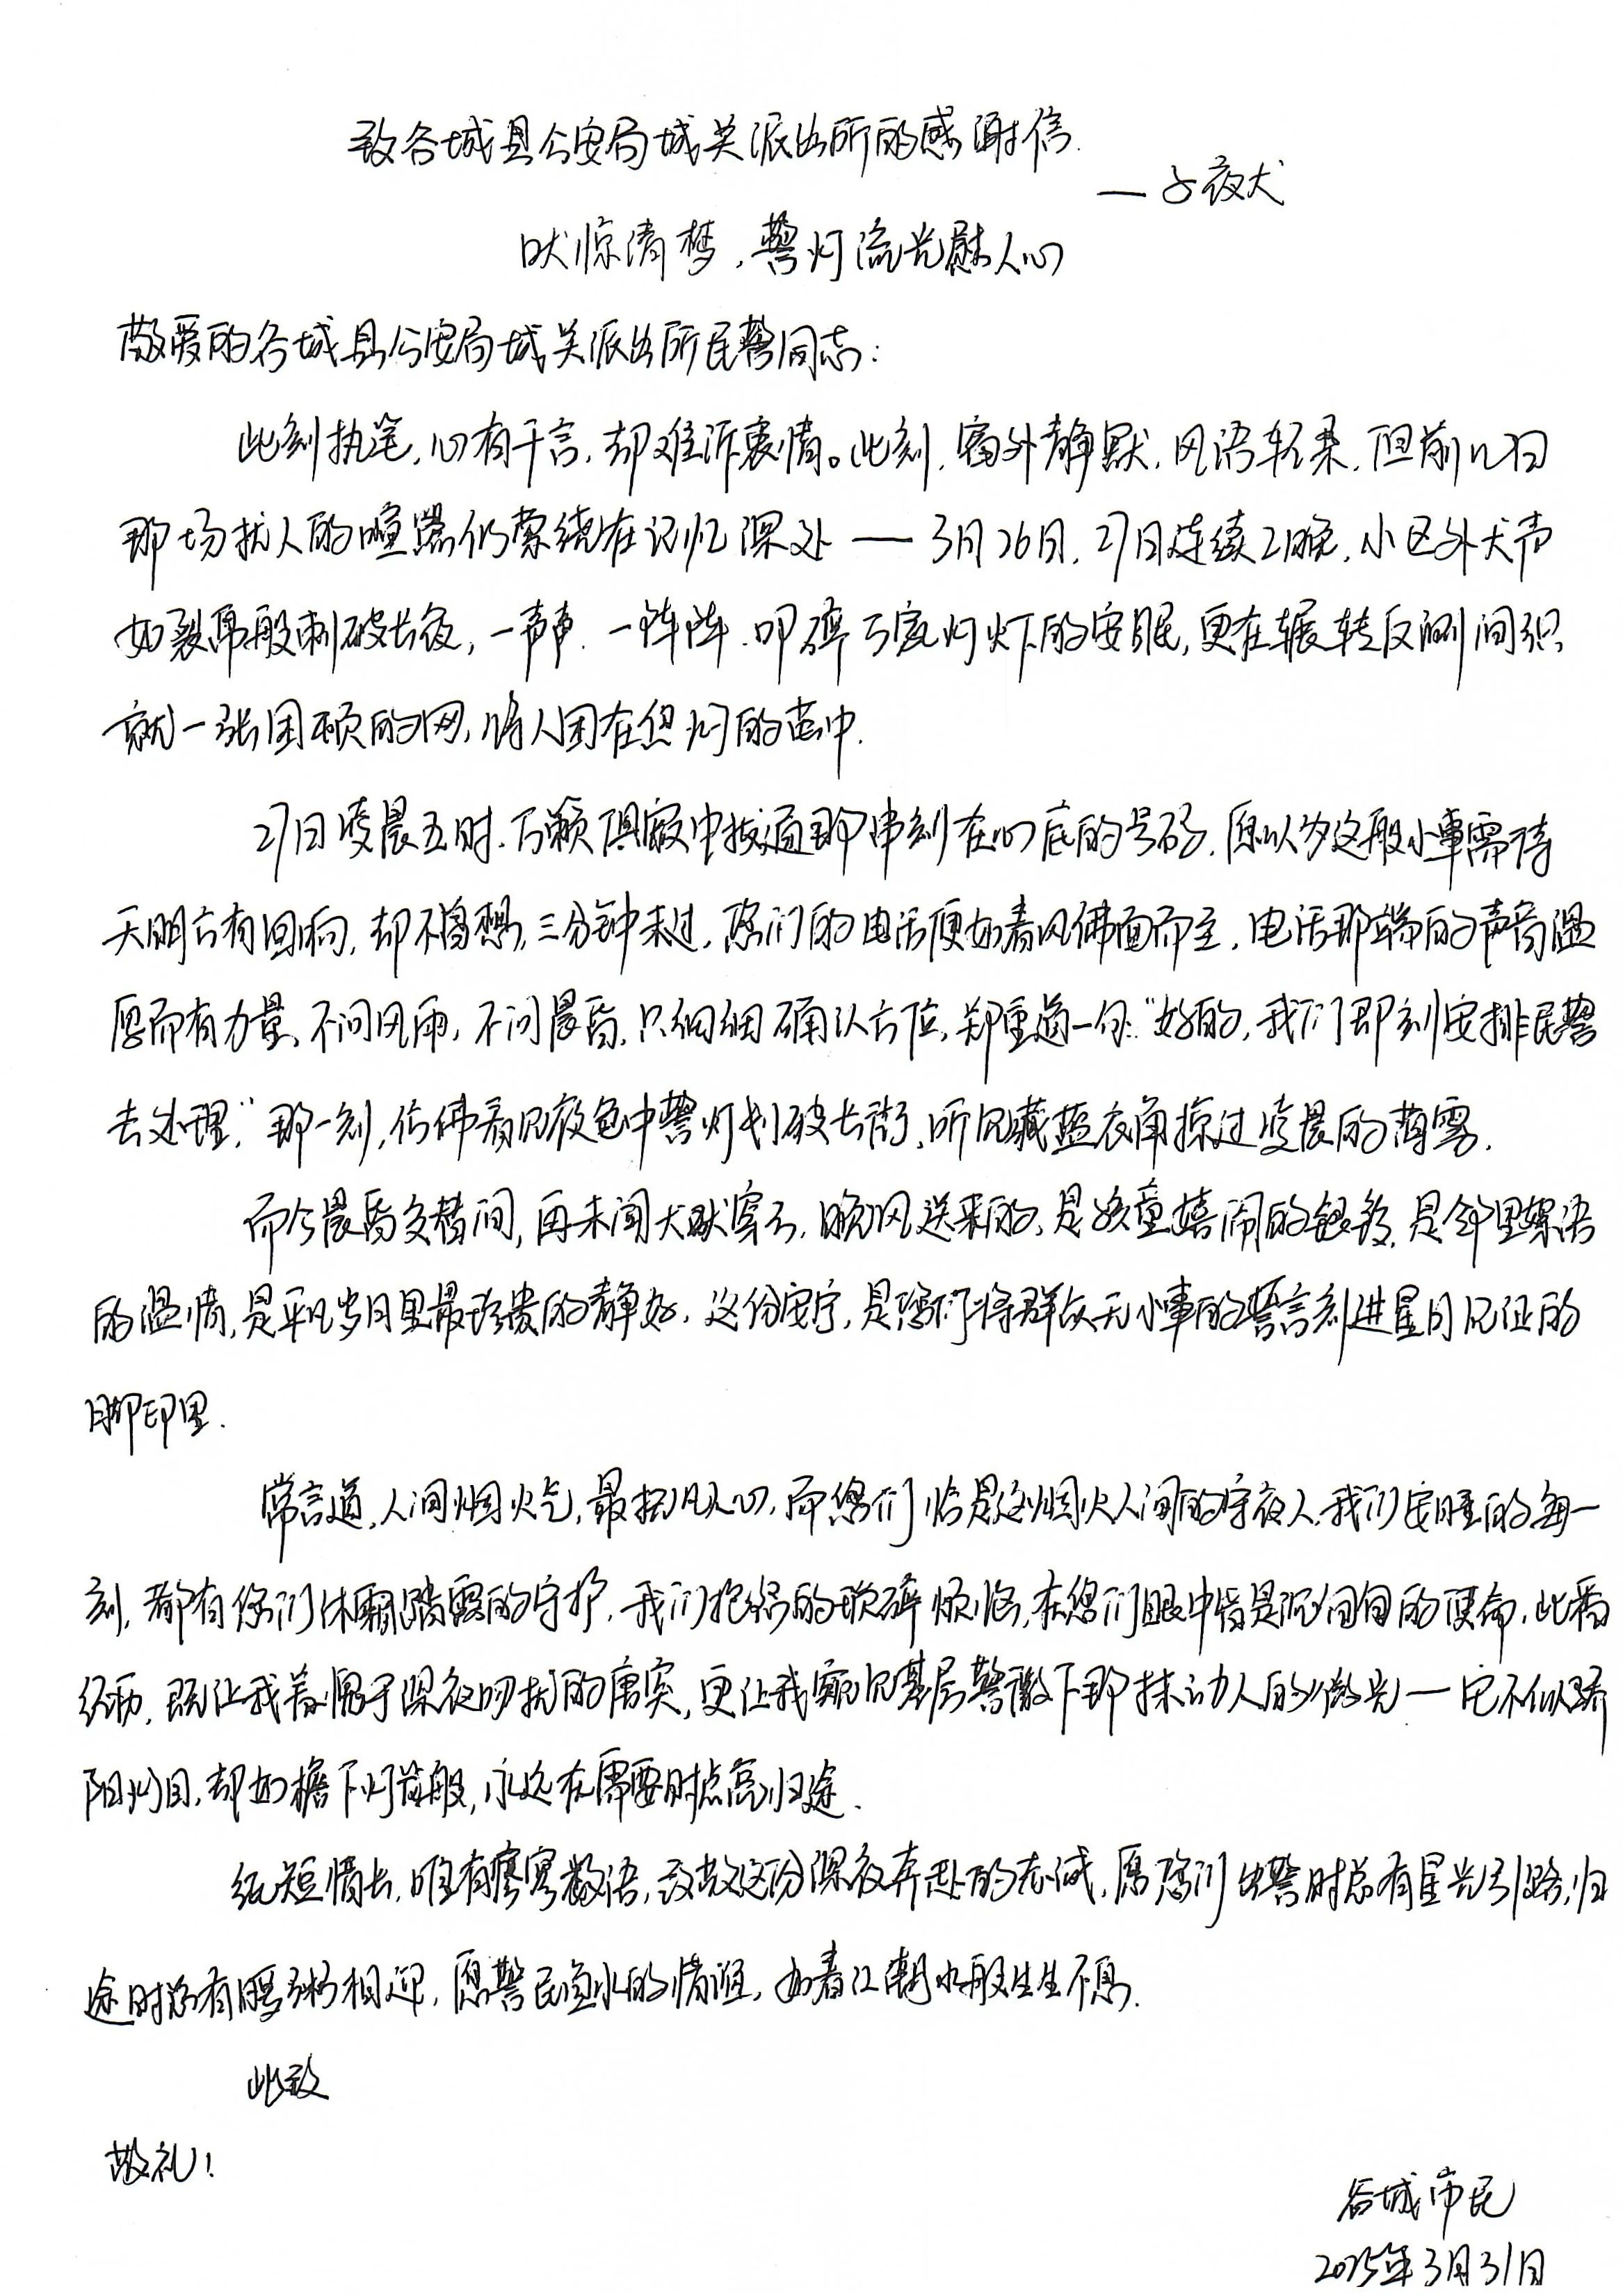 致谷城县公安局城关派出所的感谢信
——子夜犬
吠惊清梦,警灯流光慰人心
敬爱的谷城县公安局城关派出所民警同志:
此刻执笔,心有千言,却难诉衷情。此刻,窗外静默,风语轻柔,但前几日
那场扰人的喧嚣仍萦绕在记忆深处——3月26日,27日连续2晚,小区外犬声
如裂帛般刺破长夜,一声声,一阵阵,叩碎了家灯火下的安眠,更在辗转反测间织
就一张困顿的网,将人困在焦灼的茧中.
27日凌晨五时,万籁俱寂中拨通那串刻在心底的号码,原以为这般小事需待
天明方有回响,却不曾想,三分钟未过,您们的电话便如春风佛面而至,电话那端的声音温
厚而有力量,不问风雨,不问晨昏,只细细确认方位,郑重道一句:"好的,我们即刻安排民警
去处理,"那一刻,仿佛看见夜色中警灯划破长街,听见藏蓝衣角掠过凌晨的薄雾.
而今晨昏交替间,再未闻犬吠穿云,晚风送来的,是孩童嬉闹的银铃,是邻里絮语
的温情,是平凡岁月里最珍贵的静好,这份安宁,是您们将群众无小事的誓言刻进星月见证的
脚印里.
常言道,人间烟火气,最抚凡人心,而您们恰是这烟火人间的守夜人,我们安睡的每一
刻,都有您们沐霜踏露的守护,我们抱怨的琐碎烦恼,在您们眼中皆是沉甸甸的使命,此番
经历,既让我羞愧于深夜叨扰的唐突,更让我窥见基层警徽下那抹动人的微光——它不似骄
阳灼目,却如檐下灯笼般,永远在需要时点亮归途.
纸短情长,唯有寥寥数语,致敬这份深夜奔赴的赤诚,愿您们出警时总有星光引路,归
途时总有暖粥相迎,愿警民鱼水的情谊,如春江潮水般生生不息.
此致
敬礼!
谷城市民
2025年3月31日